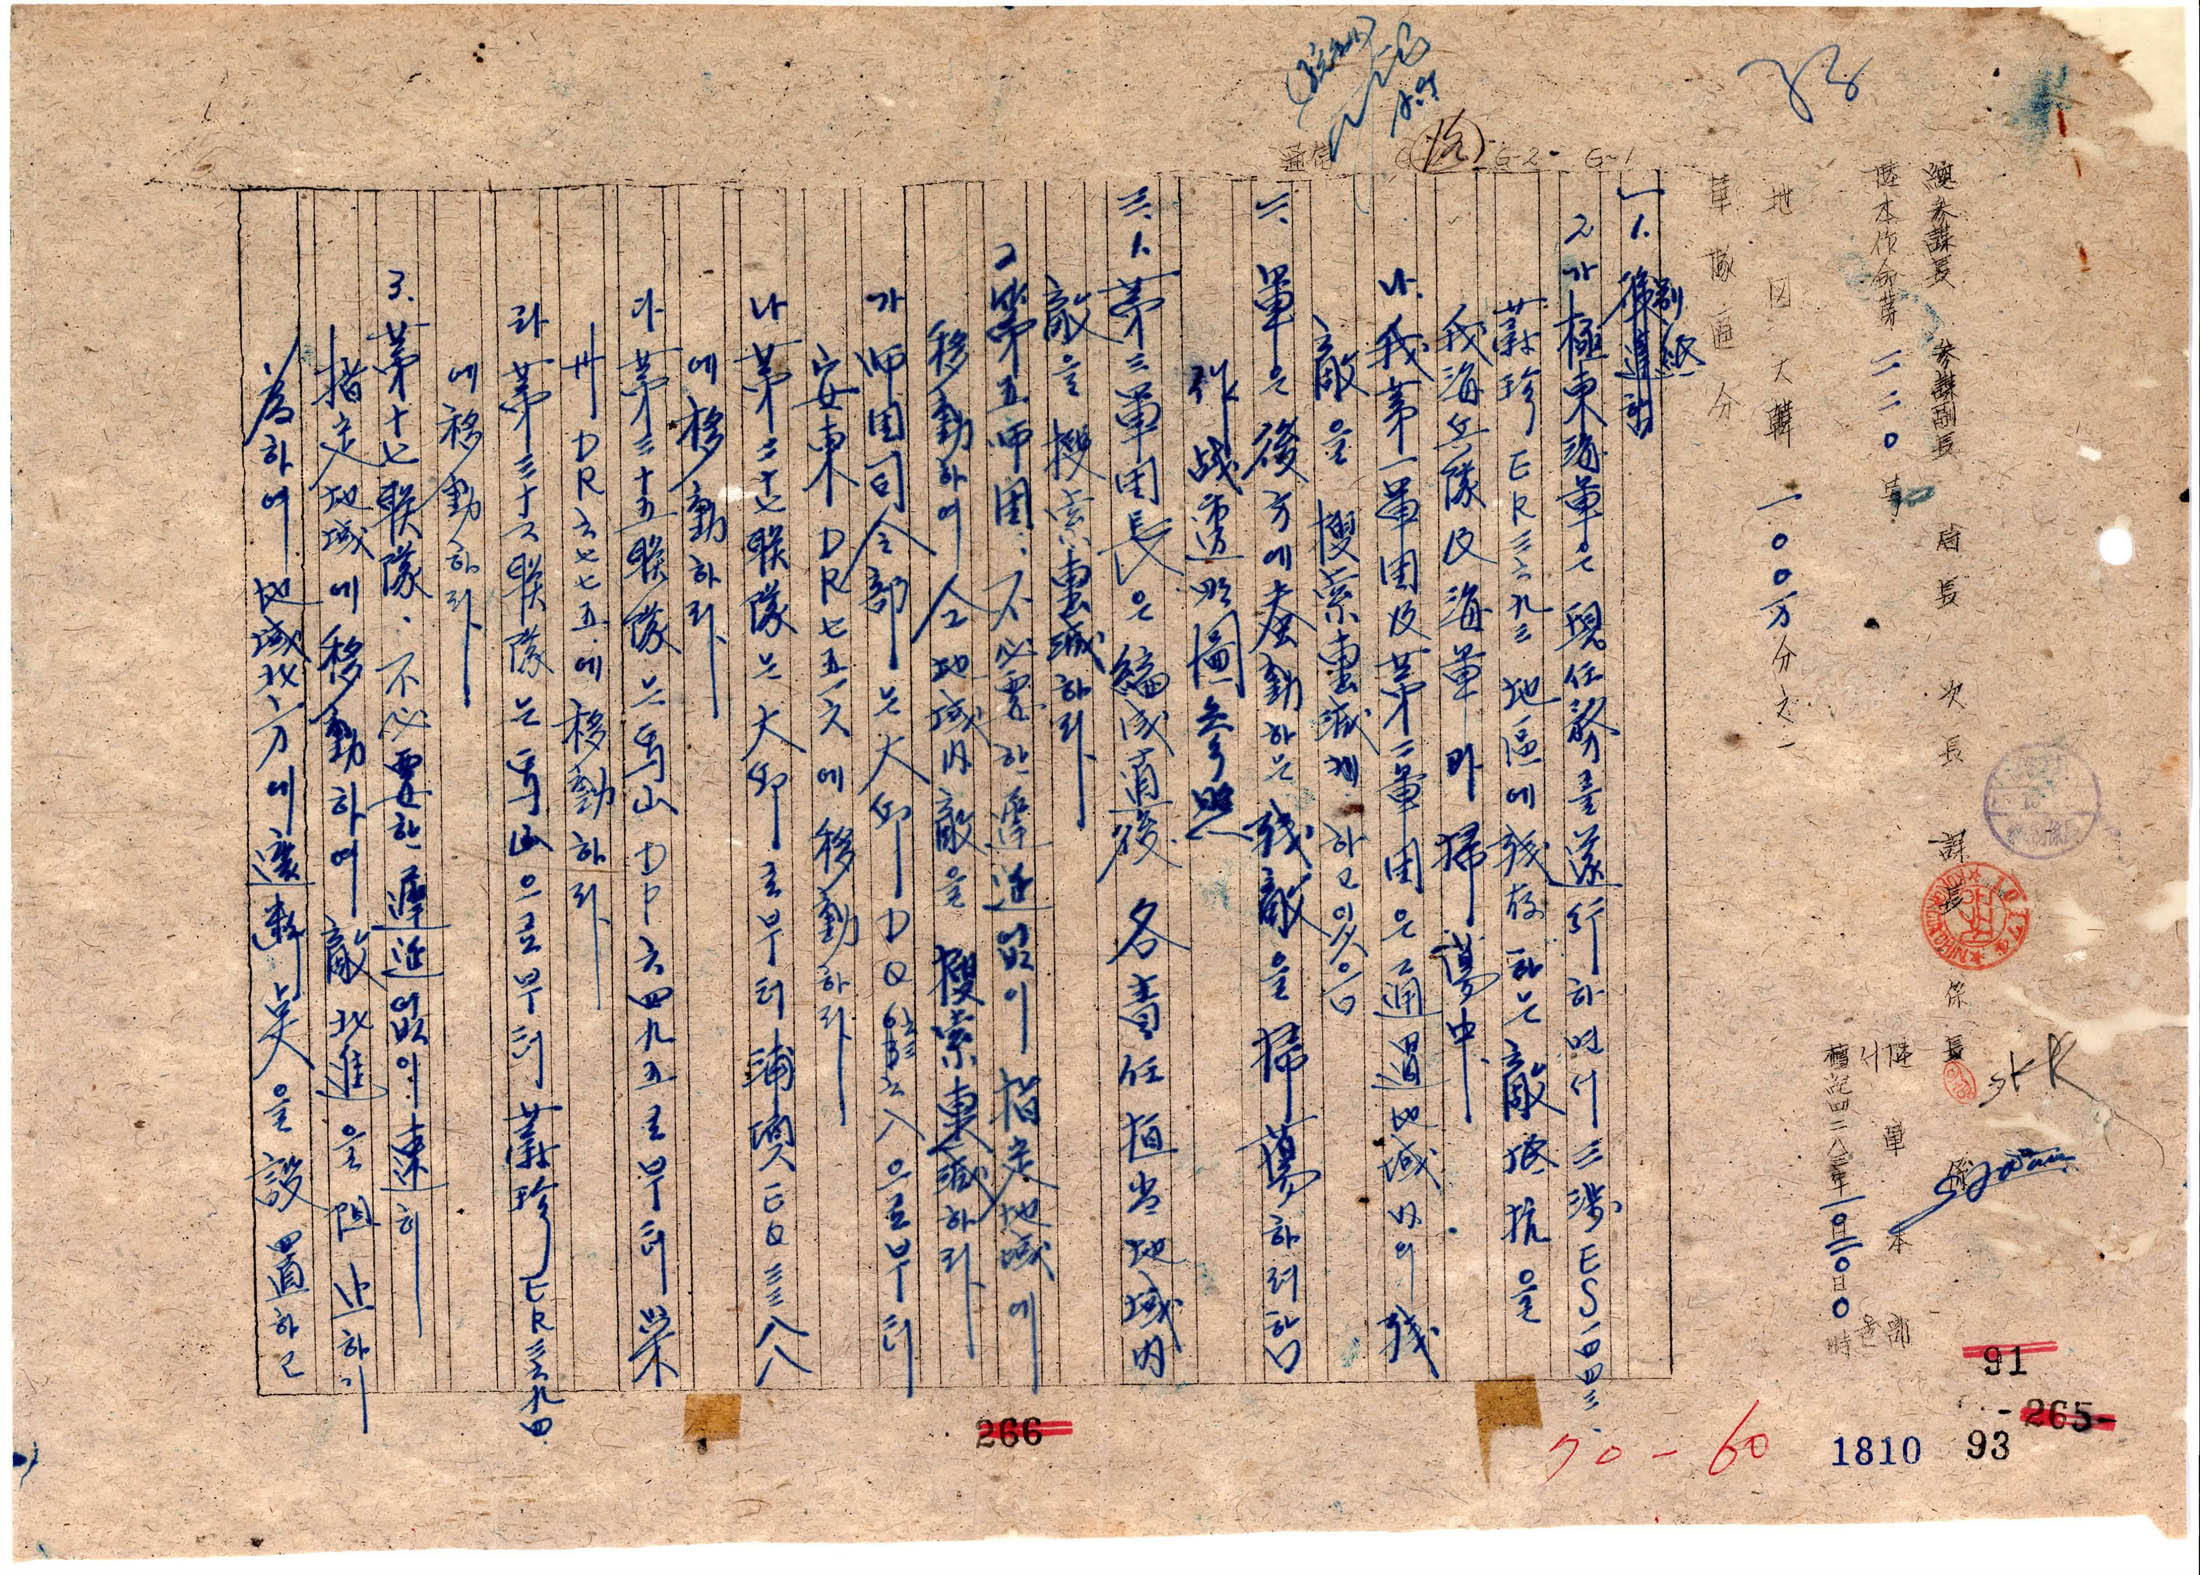 總參謀長 參謀副長 局長 次長 課長 係長
陸本作命第二二〇号
陸軍本部
서울
檀紀四二八三年一〇月一〇日〇時
地図大韓一〇〇万分之一
軍隊區分
G-1 G-2 通信
一 1. 別紙
2 가 極東海軍은 現任務를 遂行하면서 三陟 ES 一四四三.
蔚珍 ER 三六九三 地區에 殘存하는 敵 抵抗을
我海兵隊及海軍이 掃蕩中.
나. 我第一軍團及第二軍團은 通過地域内의 殘
敵을 搜索重滅게 하고 있음
二. 軍은 後方에 蠢動하는 殘敵을 掃蕩하려함
作战透明圖參照
三. 1. 第三軍団長은 編成直後 各責任担当地域内
敵을 搜索重滅하라
2 第五師団、不必要한 遲延없이 指定地域에
移動하여 仝地域内敵을 搜索重滅하라
가 師団司令部는 大邱 DQ 六八으로부터
安東 DR 七五六六에 移動하라
나 第二十七联隊는 大邱로부터 浦項 EQ 三三八八
에 移動하라
다 第三十五联隊는 馬山 DP 六四九五로부터 榮
州 DR 六七七五.에 移動하라
라 第三十六联隊는 馬山으로부터 蔚珍 ER 三六九四.
에 移動하라
3. 第十七联隊、不必要한 遲延없이 速히
指定地域에 移動하여 敵北進을 阻止하기
為하여 地域北方에 遮斷点을 設置하고
70-60
1810 93
91
-265-
266